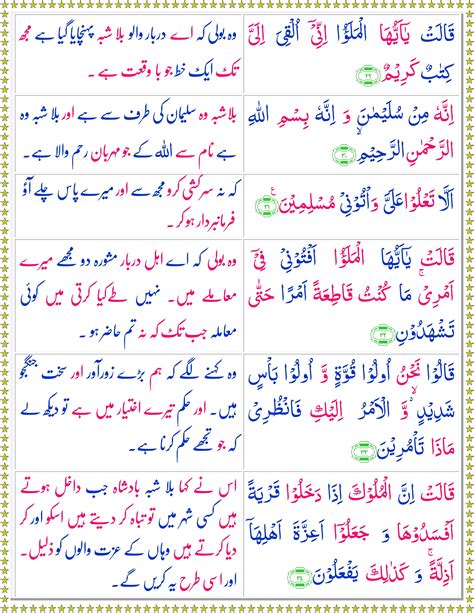 قَالَتْ يٰۤاَيُّهَا الْمَلَؤُا اِنِّىْۤ اُلْقِىَ اِلَىَّ
كِتٰبٌ كَرِيْمٌ ﴿۲۹﴾
وہ بولی کہ اے دربار والو بلا شبہ پہنچایا گیا ہے مجھ
تک ایک خط جو با وقعت ہے۔
اِنَّهٗ مِنْ سُلَيْمٰنَ وَ اِنَّهٗ بِسْمِ اللّٰهِ
الرَّحْمٰنِ الرَّحِيْمِۙ ﴿۳۰﴾
بلاشبہ وہ سلیمان کی طرف سے ہے اور بلا شبہ وہ
ہے نام سے اللہ کے جو مہربان رحم والا ہے۔
اَلَّا تَعْلُوْا عَلَىَّ وَاْتُوْنِىْ مُسْلِمِيْنَ ﴿۳۱﴾
کہ نہ سرکشی کرو مجھ سے اور میرے پاس چلے آؤ
فرمانبردار ہو کر۔
قَالَتْ يٰۤاَيُّهَا الْمَلَؤُا اَفْتُوْنِىْ فِىْۤ
اَمْرِىْۚ مَا كُنْتُ قَاطِعَةً اَمْرًا حَتّٰى
تَشْهَدُوْنِ ﴿۳۲﴾
وہ بولی کہ اے اہل دربار مشورہ دو مجھے میرے
معاملے میں۔ نہیں طے کیا کرتی میں کوئی
معاملہ جب تک کہ نہ تم حاضر ہو۔
قَالُوْا نَحْنُ اُولُوْا قُوَّةٍ وَّ اُولُوْا بَاْسٍ
شَدِيْدٍۙ وَّ الْاَمْرُ اِلَيْكِ فَانْظُرِىْ
مَاذَا تَاْمُرِيْنَ ﴿۳۳﴾
وہ کہنے لگے کہ ہم بڑے زورآور اور سخت جنگجو
ہیں۔ اور حکم تیرے اختیار میں ہے تو دیکھ لے
کہ جو تجھے حکم کرنا ہے۔
قَالَتْ اِنَّ الْمُلُوْكَ اِذَا دَخَلُوْا قَرْيَةً
اَفْسَدُوْهَا وَ جَعَلُوْۤا اَعِزَّةَ اَهْلِهَاۤ
اَذِلَّةًۚ وَ كَذٰلِكَ يَفْعَلُوْنَ ﴿۳۴﴾
اس نے کہا بلا شبہ بادشاہ جب داخل ہوتے
ہیں کسی شہر میں تو تباہ کر دیتے ہیں اسکو اور کر
دیا کرتے ہیں وہاں کے عزت والوں کو ذلیل۔
اور اسی طرح یہ کریں گے۔